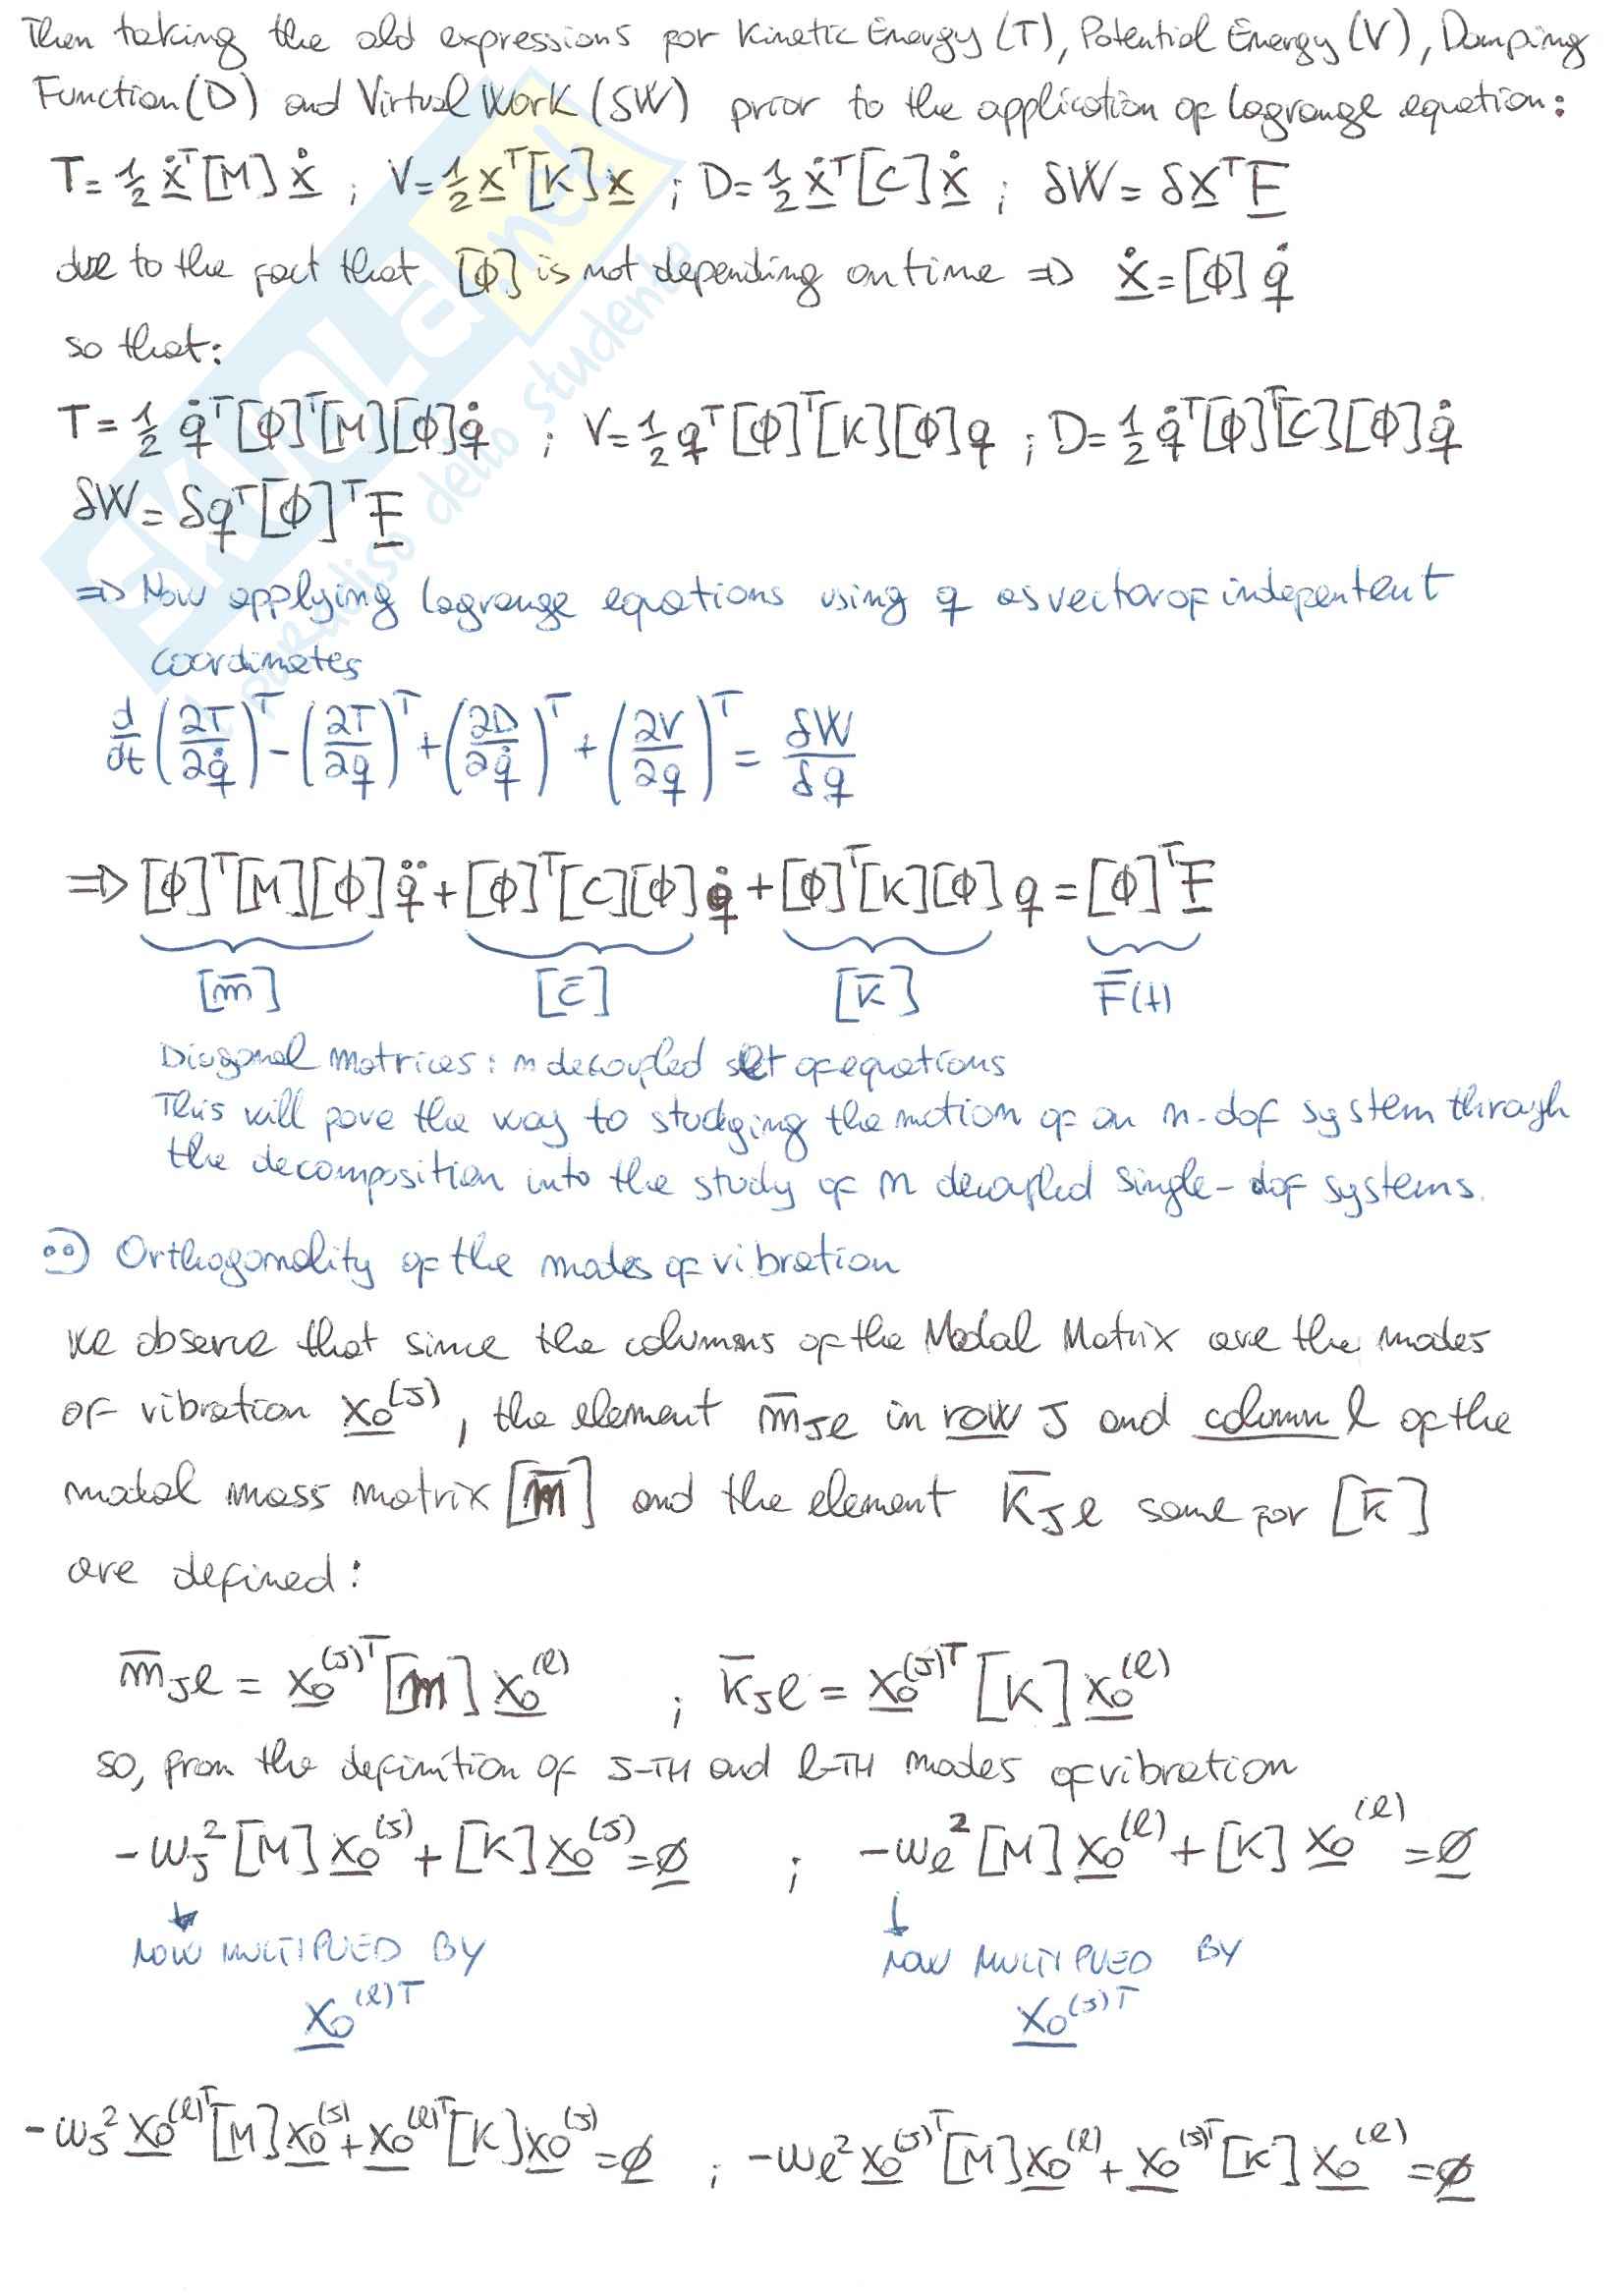 Then taking the old expressions for Kinetic Energy (T), Potential Energy (V), Damping
Function (D) and Virtual Work (δW) prior to the application of Lagrange equation:
T = 1/2 ẋ^T [M] ẋ ; V = 1/2 x^T [K] x ; D = 1/2 ẋ^T [C] ẋ ; δW = δx^T F
due to the fact that [φ] is not depending on time => ẋ = [φ] q̇
so that:
T = 1/2 q̇^T [φ]^T [M] [φ] q̇ ; V = 1/2 q^T [φ]^T [K] [φ] q ; D = 1/2 q̇^T [φ]^T [C] [φ] q̇
δW = δq^T [φ]^T F
=> Now applying Lagrange equations using q as vector of indepentent
coordinates
d/dt (∂T/∂q̇)^T - (∂T/∂q)^T + (∂D/∂q̇)^T + (∂V/∂q)^T = δW/δq
=> [φ]^T [M] [φ] q̈ + [φ]^T [C] [φ] q̇ + [φ]^T [K] [φ] q = [φ]^T F
[m̄] [c̄] [k̄] F̄(t)
Diagonal matrices: n decoupled set of equations
This will pave the way to studying the motion of an n-dof system through
the decomposition into the study of n decoupled single-dof systems.
••) Orthogonality of the modes of vibration
We observe that since the columns of the Modal Matrix are the modes
of vibration x0^(J), the element m̄Jl in row J and column l of the
modal mass matrix [m̄] and the element k̄Jl same for [k̄]
are defined:
m̄Jl = x0^(J)T [m] x0^(l) ; k̄Jl = x0^(J)T [K] x0^(l)
so, from the definition of J-TH and l-TH modes of vibration
-ωJ² [M] x0^(J) + [K] x0^(J) = ∅ ; -ωl² [M] x0^(l) + [K] x0^(l) = ∅
NOW MULTIPLIED BY NOW MULTIPLIED BY
x0^(l)T x0^(J)T
-ωJ² x0^(l)T [M] x0^(J) + x0^(l)T [K] x0^(J) = ∅ ; -ωl² x0^(J)T [M] x0^(l) + x0^(J)T [K] x0^(l) = ∅
SKUOLA.net
il paradiso dello studente